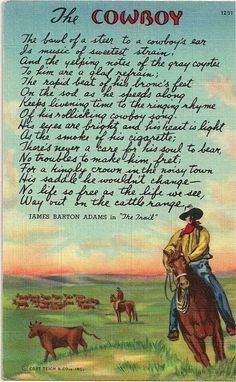 The COWBOY
1251
The bawl of a steer to a cowboy's ear
Is music of sweetest strain;
And the yelping notes of the gray coyotes
To him are a glad refrain;
The rapid beat of his bronc's feet
On the sod as he speeds along
Keeps livening time to the ringing rhyme
Of his rollicking cowboy song.
His eyes are bright and his heart is light
As the smoke of his cigarette;
There's never a care for his soul to bear,
No troubles to make him fret;
For a kingly crown in the noisy town
His saddle he wouldn't change—
No life so free as the life we see,
Way out on the cattle range.
JAMES BARTON ADAMS in "The Trail"
CURT TEICH & CO., INC.